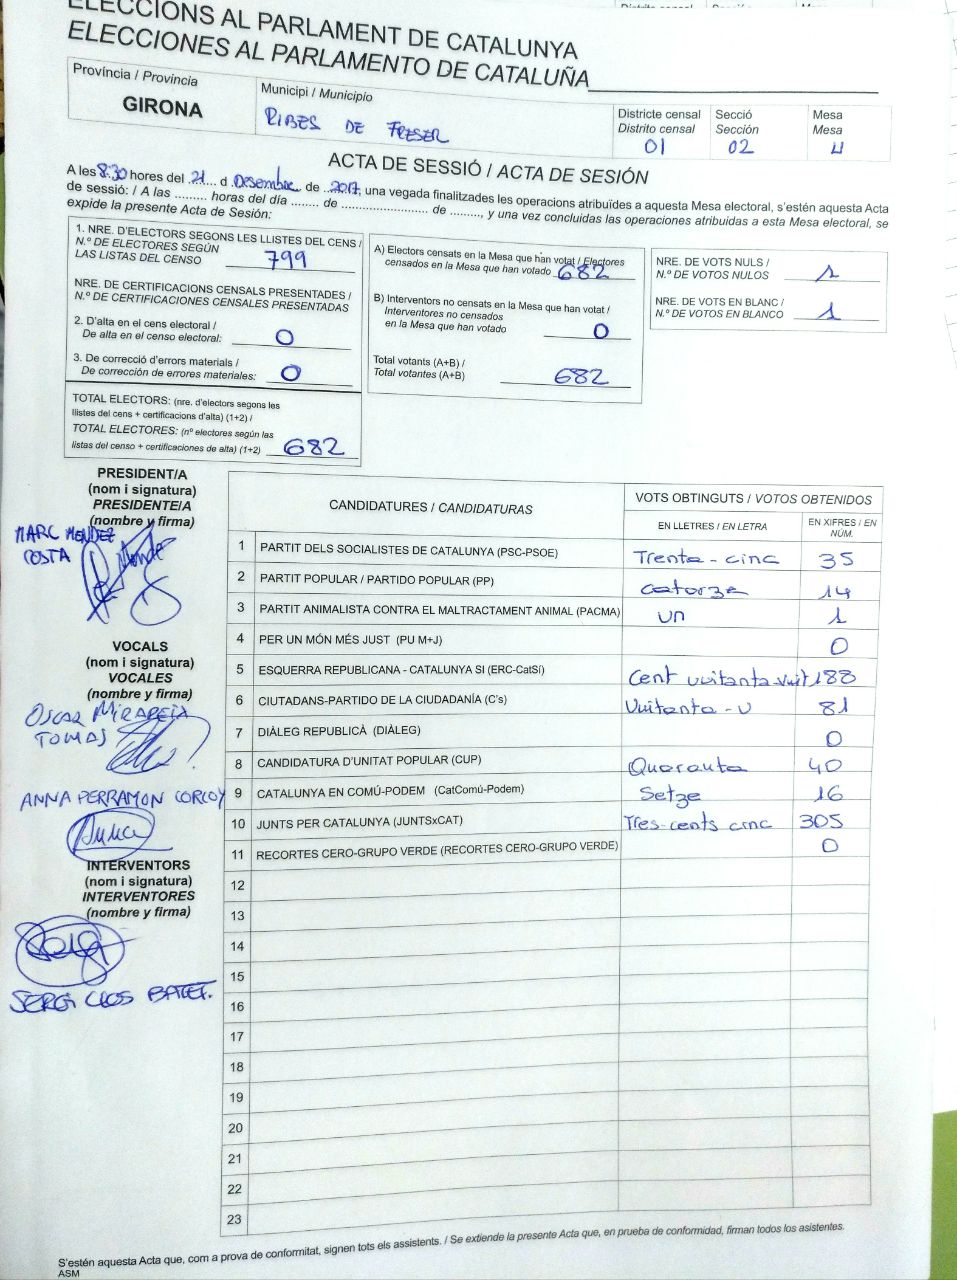 ELECCIONS AL PARLAMENT DE CATALUNYA
ELECCIONES AL PARLAMENTO DE CATALUÑA
Província / Provincia
GIRONA
Municipi / Municipio
RIBES DE FRESER
Districte censal
Distrito censal
01
Secció
Sección
02
Mesa
Mesa
U
ACTA DE SESSIÓ / ACTA DE SESIÓN
A les 8:30 hores del 21 d Desembre de 2017, una vegada finalitzades les operacions atribuïdes a aquesta Mesa electoral, s'estén aquesta Acta
de sessió: / A las ......... horas del día ........ de ......................... de ........., y una vez concluidas las operaciones atribuidas a esta Mesa electoral, se
expide la presente Acta de Sesión:
1. NRE. D'ELECTORS SEGONS LES LLISTES DEL CENS /
N.º DE ELECTORES SEGÚN
LAS LISTAS DEL CENSO 799
NRE. DE CERTIFICACIONS CENSALS PRESENTADES /
N.º DE CERTIFICACIONES CENSALES PRESENTADAS
2. D'alta en el cens electoral /
De alta en el censo electoral: 0
3. De correcció d'errors materials /
De corrección de errores materiales: 0
TOTAL ELECTORS: (nre. d'electors segons les
llistes del cens + certificacions d'alta) (1+2) /
TOTAL ELECTORES: (nº electores según las
listas del censo + certificaciones de alta) (1+2) 682
A) Electors censats en la Mesa que han votat / Electores
censados en la Mesa que han votado 682
B) Interventors no censats en la Mesa que han votat /
Interventores no censados
en la Mesa que han votado 0
Total votants (A+B) /
Total votantes (A+B) 682
NRE. DE VOTS NULS /
N.º DE VOTOS NULOS 1
NRE. DE VOTS EN BLANC /
N.º DE VOTOS EN BLANCO 1
PRESIDENT/A
(nom i signatura)
PRESIDENTE/A
(nombre y firma)
MARC MENDEZ
COSTA
VOCALS
(nom i signatura)
VOCALES
(nombre y firma)
OSCAR MIRAPEIX
TOMAS
ANNA PERRAMON CORCOY
Anna
INTERVENTORS
(nom i signatura)
INTERVENTORES
(nombre y firma)
SERGI CLOS BATET.
CANDIDATURES / CANDIDATURAS
VOTS OBTINGUTS / VOTOS OBTENIDOS
EN LLETRES / EN LETRA
EN XIFRES / EN
NÚM.
1 PARTIT DELS SOCIALISTES DE CATALUNYA (PSC-PSOE) Trenta-cinc 35
2 PARTIT POPULAR / PARTIDO POPULAR (PP) catorze 14
3 PARTIT ANIMALISTA CONTRA EL MALTRACTAMENT ANIMAL (PACMA) un 1
4 PER UN MÓN MÉS JUST (PU M+J) 0
5 ESQUERRA REPUBLICANA - CATALUNYA SI (ERC-CatSí) Cent vuitanta vuit 188
6 CIUTADANS-PARTIDO DE LA CIUDADANÍA (C's) Vuitanta-u 81
7 DIÀLEG REPUBLICÀ (DIÀLEG) 0
8 CANDIDATURA D'UNITAT POPULAR (CUP) Quaranta 40
9 CATALUNYA EN COMÚ-PODEM (CatComú-Podem) Setze 16
10 JUNTS PER CATALUNYA (JUNTSxCAT) Tres-cents cinc 305
11 RECORTES CERO-GRUPO VERDE (RECORTES CERO-GRUPO VERDE) 0
12
13
14
15
16
17
18
19
20
21
22
23
S'estén aquesta Acta que, com a prova de conformitat, signen tots els assistents. / Se extiende la presente Acta que, en prueba de conformidad, firman todos los asistentes.
ASM